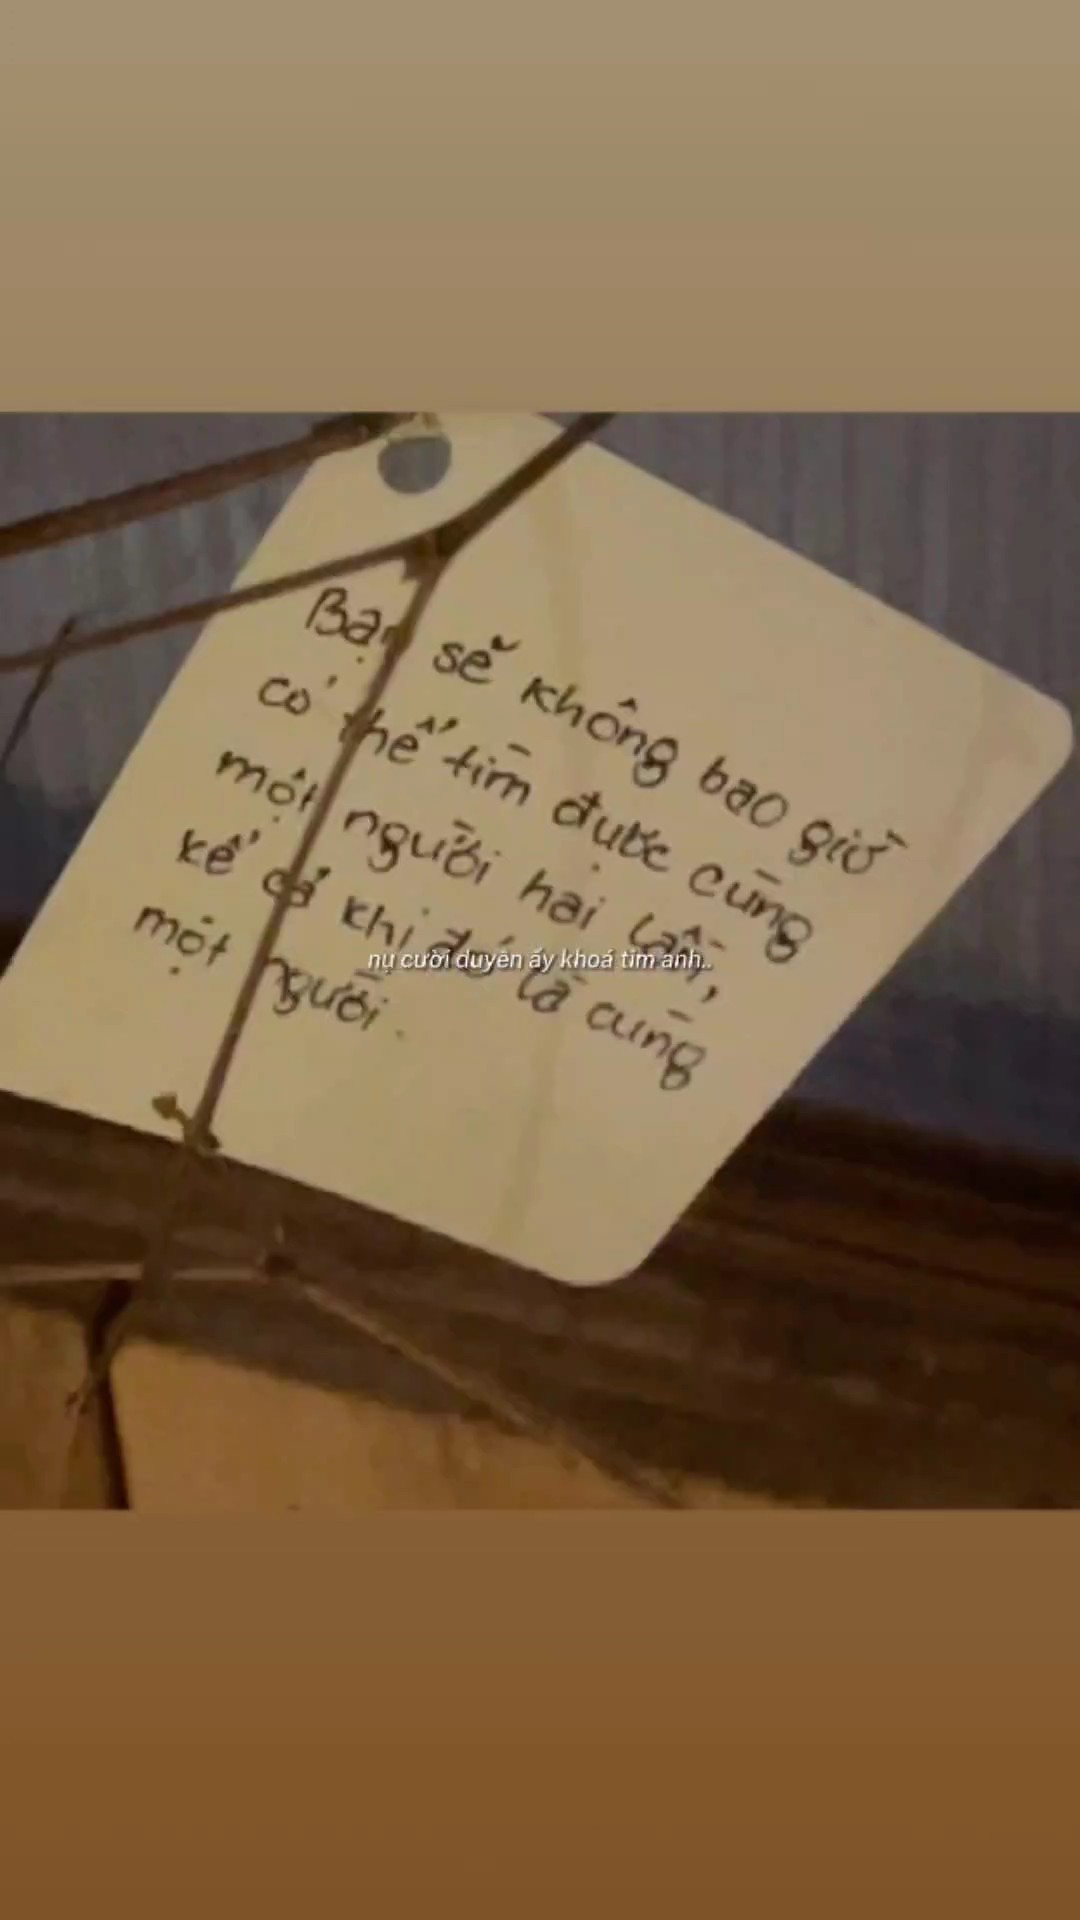 Bạn sẽ không bao giờ
có thể tìm được cùng
một người hai lần,
kể cả khi đó là cùng
một người.
nụ cười duyên ấy khoá tim anh..